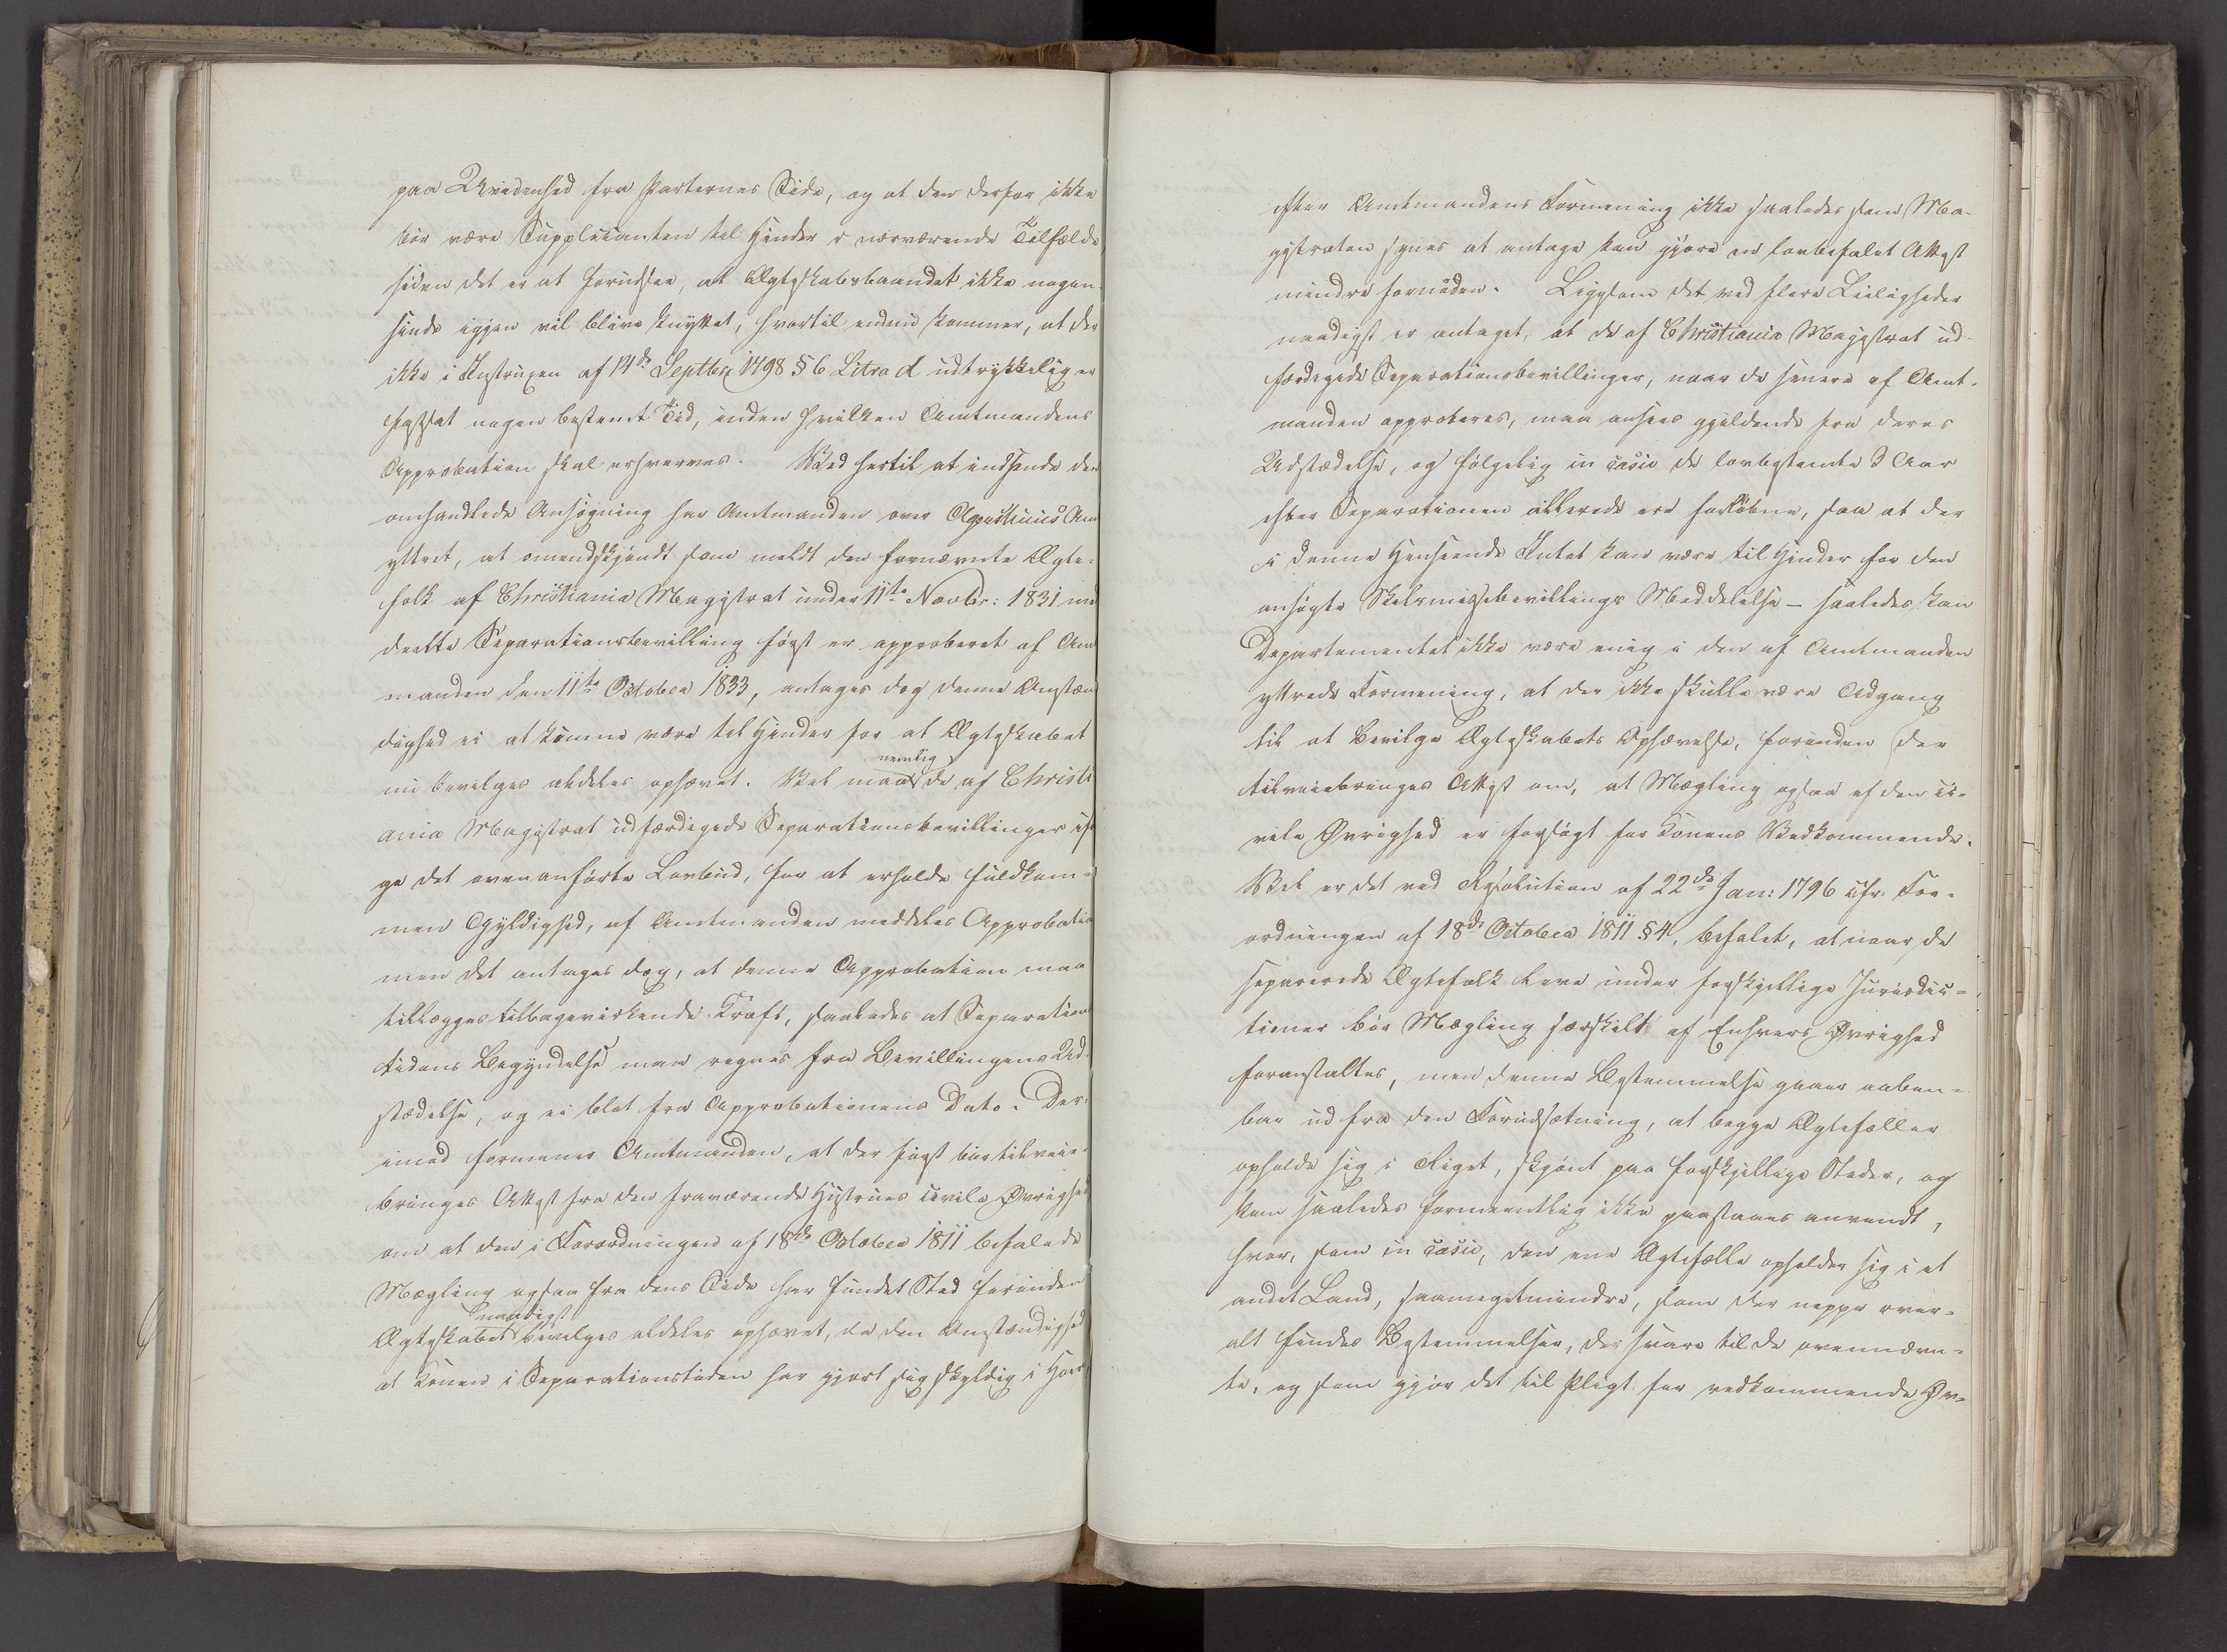 paa Uvidenhed fra Parternes Side, og at den derfor ikke
bør være Supplicanten til Hinder i nærværende Tilfælde
siden det er at forudsee, at Ægteskabsbaandet ikke nogen-
sinde igjen vil blive knyttet, hvortil endnu kommer, at der
ikke i Instruxen af 14de Septbr: 1798 § 6 Litra d udtrykkelig er
fastsat nogen bestemt Tid, inden hvilken Amtmandens
Approbation skal erhverves. Ved hertil at indsende den
omhandlede Ansøgning har Amtmanden over Agershuus Am
yttret, at omendskjøndt som meldt den fornævnte Ægte-
folk af Christiania Magistrat under 11te Novbr: 1831 med
deelte Separationsbevilling først er approberet af Amt
manden den 11te October 1833, antages dog denne Omstæn
dighed ei at kunne være til Hinder for at Ægteskabet
nu bevilges aldeles ophævet. Vel maae nemlig de af Christi
ania Magistrat udfærdigede Separationsbevillinger iføl
ge det ovenanførte Lovbud, for at erholde fuldkom-
men Gyldighed, af Amtmanden meddeles Approbation
men det antages dog, at denne Approbation maa
tillægges tilbagevirkende Kraft, saaledes at Separations
tidens Begyndelse maa regnes fra Bevillingens Ud-
stædelse, og ei blot fra Approbationens Dato. Der-
imod formener Amtmanden, at der først bør tilveie-
bringes Attest fra den fraværende Hustrues civile Øvrighed
om at den i Forordningen af 18de October 1811 befalede
Mægling ogsaa fra dens Side har fundet Sted forinden
Ægteskabet naadigst bevilges aldeles ophævet, da den Omstændighed
at Konen i Separationstiden har gjort sig skyldig i Hoer
efter Amtmandens Formening ikke saaledes som Ma-
gistraten synes at antage kan gjøre en lovbefalet Attest
mindre fornøden. Ligesom det ved flere Leiligheder
naadigst er antaget, at de af Christiania Magistrat ud-
færdigede Separationsbevillinger, naar de senere af Amt-
manden approberes, maa ansees gjeldende fra deres
Udstædelse, og følgelig in casu de lovbestemte 3 Aar
efter Separationen allerede ere forløbne, saa at der
i denne Henseende Intet kan være til Hinder for den
ansøgte Skilsmissebevillings Meddelelse – saaledes kan
Departementet ikke være enig i den af Amtmanden
yttrede Formening, at der ikke skulle være Adgang
til at bevilge Ægteskabets Ophævelse, forinden der
tilveiebringes Attest om, at Mægling ogsaa af den ci-
vile Øvrighed er forsøgt for Konens Vedkommende.
Vel er det ved Resolution af 22de Jan: 1796 cfr. For-
ordningen af 18de October 1811 § 4, befalet, at naar de
separerede Ægtefolk leve under forskjellige Jurisdic-
tioner bør Mægling særskilt af Enhvers Øvrighed
foranstaltes, men denne Bestemmelse gaaer aaben-
bar ud fra den Forudsætning, at begge Ægtefæller
opholde sig i Riget, skjønt paa forskjellige Steder, og
kan saaledes formeentlig ikke paastaaes anvendt,
hvor, som in casu, den ene Ægtefælle opholder sig i et
andet Land, saameget mindre, som der neppe over-
alt findes Bestemmelser, der svare til de ovennævn-
te, og som gjør det til Pligt for vedkommende Øv-